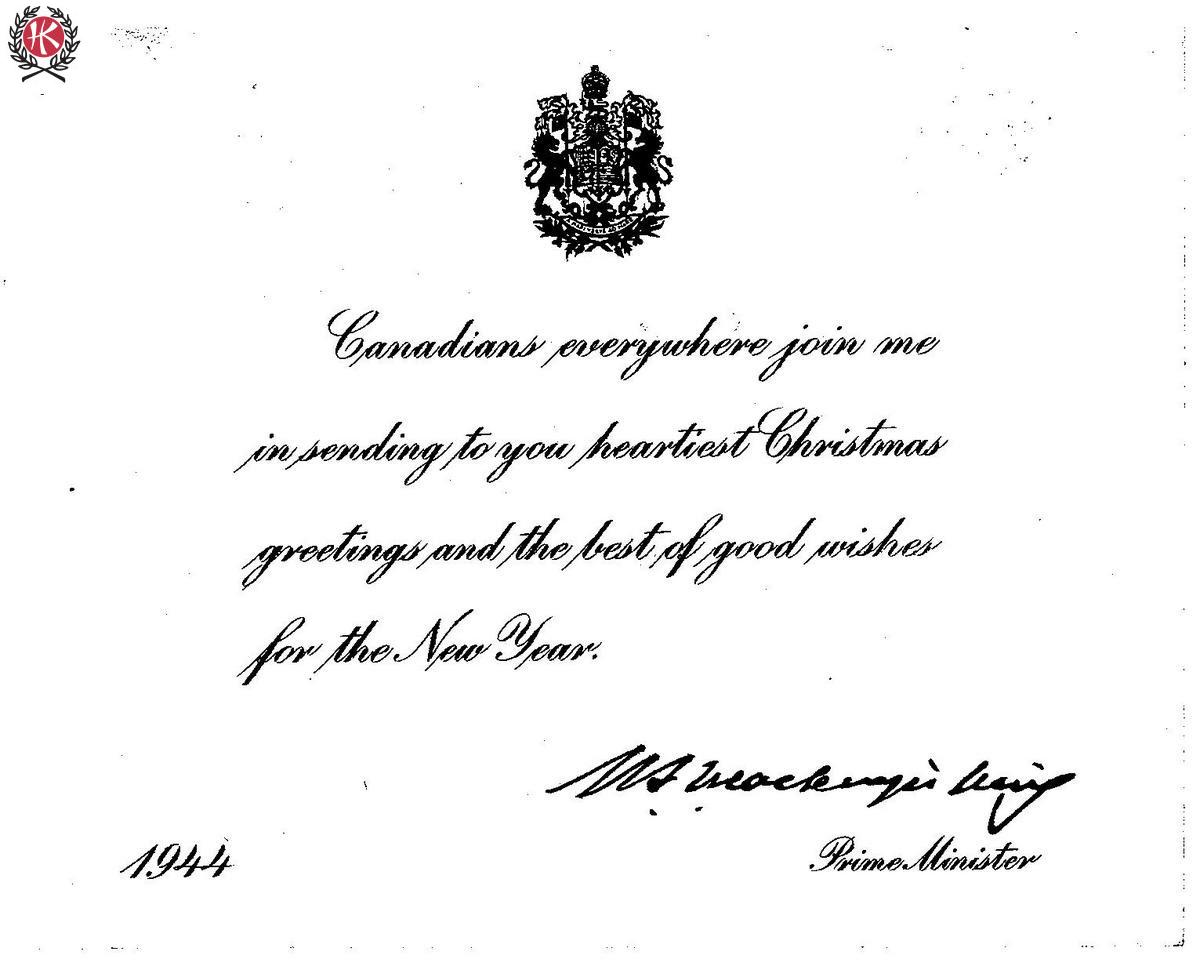 HK
Canadians everywhere join me
in sending to you heartiest Christmas
greetings and the best of good wishes
for the New Year.
W L Mackenzie King
1944
Prime Minister